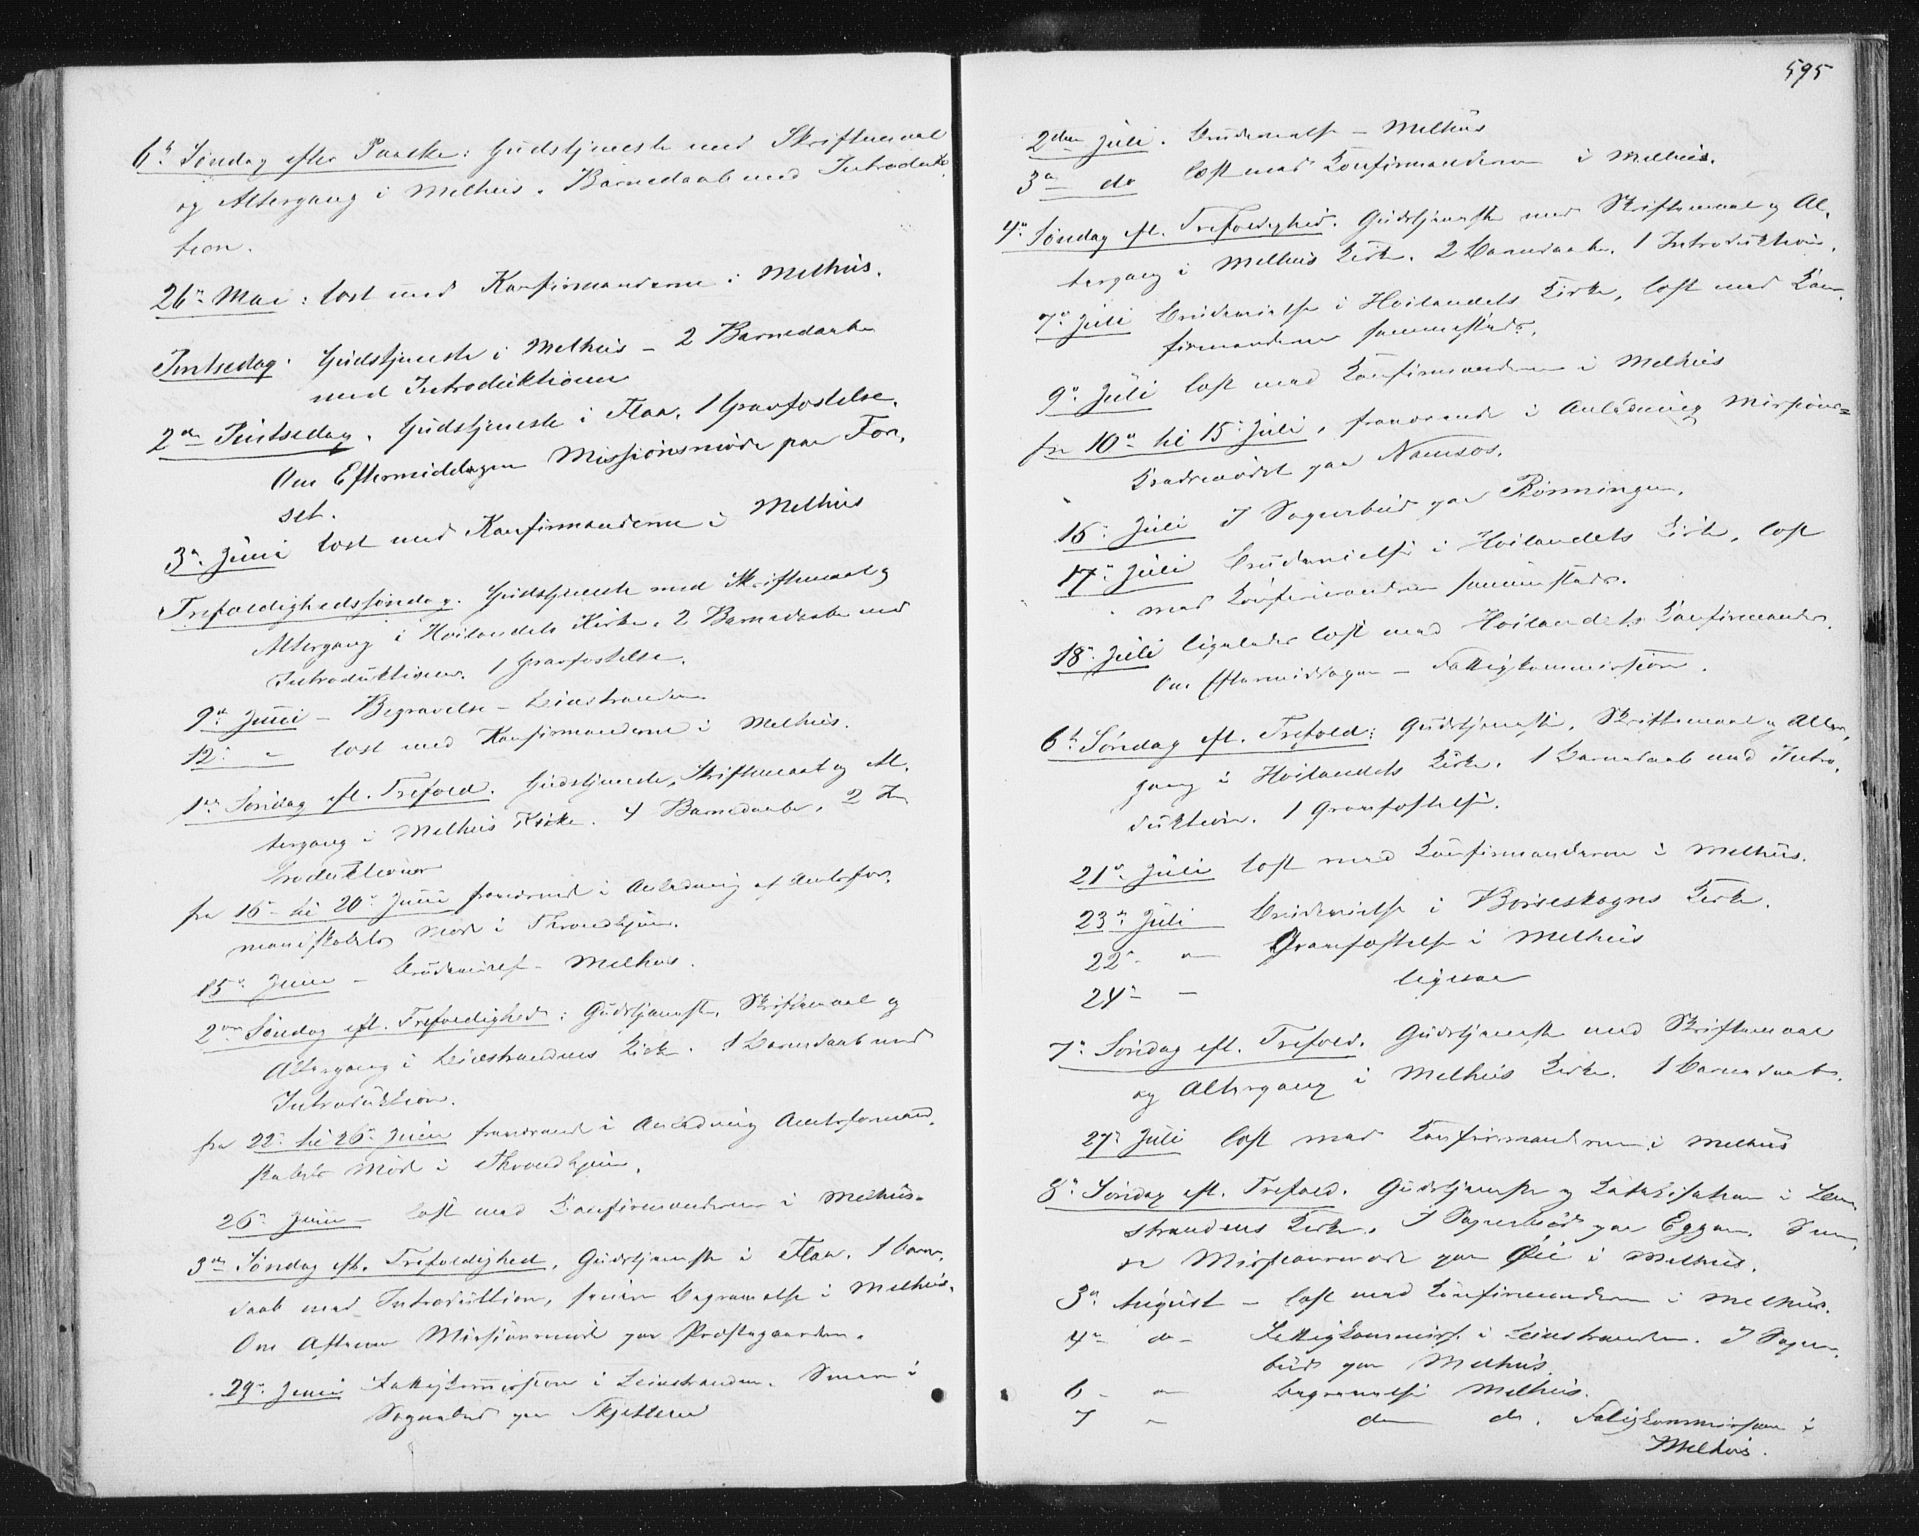 6te Søndag efter Paaske: Gudstjeneste med Skriftemaal
og Altergang i Melhus. Barnedaab med Introduk-
tion.
26de Mai: læst med Konfirmanderne i Melhus.
Pintsedag. Gudstjeneste i Melhus – 2 Barnedaabe
med Introduktioner
2den Pintsedag. Gudstjeneste i Flaa. 1 Gravfæstelse.
Om Eftermiddagen Missionsmøde paa For-
set.
3de Juni læst med Konfirmanderne i Melhus
Trefoldighedssøndag. Gudstjeneste med Skriftemaal og
Altergang i Høilandets Kirke. 2 Barnedaabe med
Introduktioner. 1 Gravfæstelse.
9de Juni – Begravelse – Leinstranden
12te " læst med Konfirmanderne i Melhus.
1ste Søndag eft. Trefold. Gudstjeneste, Skriftemaal og Al-
tergang i Melhus Kirke. 4 Barnedaabe. 2 In
troduktioner
fra 16de til 20de Juni fraværende i Anledning af Amtsfor-
mandskabets Møde i Throndhjem.
15de Juni – Brudevielse – Melhus.
2den Søndag eft. Trefoldighed: Gudstjeneste, Skriftemaal og
Altergang i Leinstrandens Kirke. 1 Barnedaab med
Introduktion.
fra 22de til 26de Juni fraværende i Anledning Amtsformand-
skabets Møde i Throndhjem.
26de Juni – læst med Konfirmanderne i Melhus.
3die Søndag eft. Trefoldighed. Gudstjeneste i Flaa. 1 Barne-
daab med Introduktion, senere Begravelse i Melhus.
Om Aftenen Missionsmøde paa Præstegaarden.
29de Juni Fattigkommission i Leinstranden. Senere i
Sognebud paa Skjetlein
595
2den Juli. Brudevielse – Melhus
3die do læst med Konfirmanderne i Melhus.
4de Søndag eft. Trefoldighed. Gudstjeneste med Skriftemaal og Al-
tergang i Melhus Kirke. 2 Barnedaabe. 1 Introduktion.
7de Juli Brudevielse i Høilandets Kirke, læst med Kon-
firmanderne sammesteds.
9de Juli læst med Konfirmanderne i Melhus
fra 10de til 15de Juli, fraværende i Anledning Missions-
Kredsmødet paa Namsos.
16de Juli I Sognebud paa Rønningen.
17de Juli Brudevielse i Høilandets Kirke, læst
med Konfirmanderne sammesteds.
18de Juli ligeledes læst med Høilandets Konfirmander.
Om Eftermiddagen – Fattigkommission.
6te Søndag eft. Trefold: Gudstjeneste, Skriftemaal og Alter-
gang i Høilandets Kirke. 1 Barnedaab med Intro-
duktion. 1 Gravfæstelse.
21de Juli læst med Konfirmanderne i Melhus.
23de Juli Brudevielse i Børseskogns Kirke.
22de " Gravfæstelse i Melhus
24de – ligesaa
7de Søndag eft. Trefold. Gudstjeneste med Skriftemaal
og Altergang i Melhus Kirke. 1 Barnedaab.
27de Juli læst med Konfirmanderne i Melhus
8de Søndag eft. Trefold. Gudstjeneste og Katekisation i Lein
strandens Kirke. I Sognebud paa Eggen. Sene-
re Missionsmøde paa Øie i Melhus.
3die August – læst med Konfirmanderne i Melhus.
4de do – Fattigkommiss. i Leinstranden. I Sogne-
bud paa Melhus.
6 – " Begravelse Melhus.
7 " do do. Fatigkommission i
Melhus.